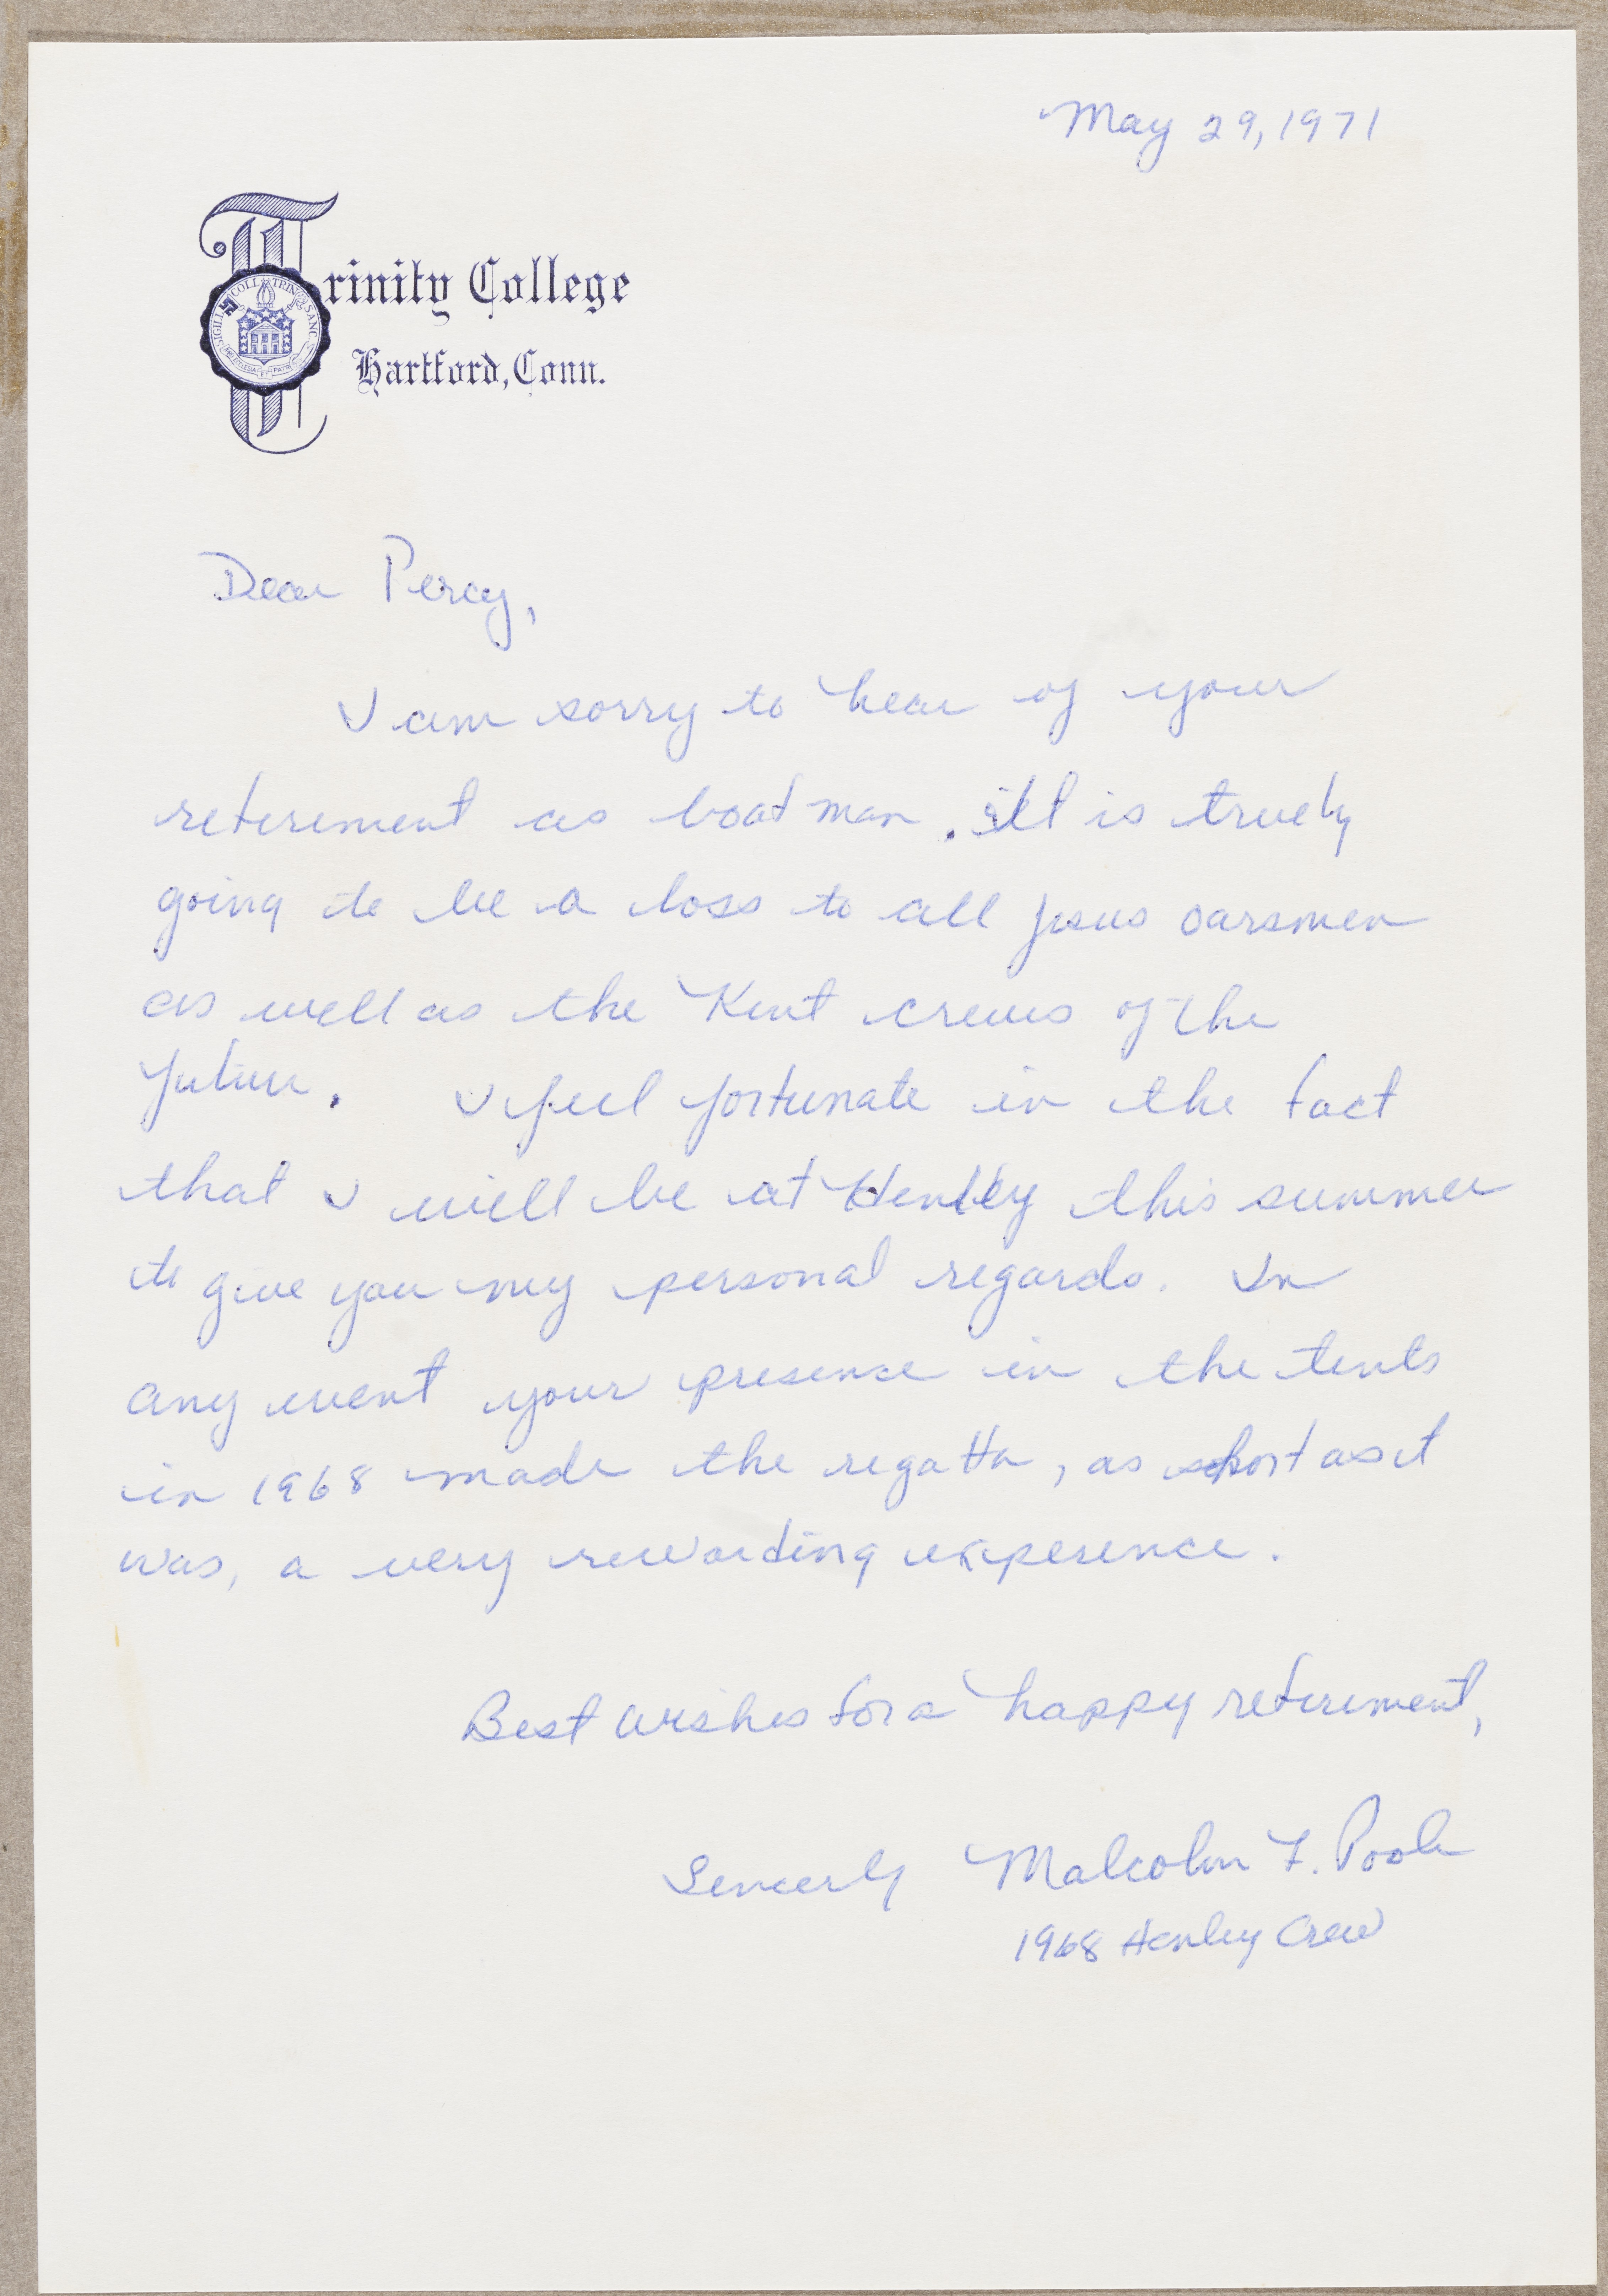 May 29, 1971
Trinity College
Hartford, Conn.
Dear Percy,
I am sorry to hear of your
retirement as boatman. It is truely
going to be a loss to all Jesus oarsmen
as well as the Kent crews of the
future. I feel fortunate in the fact
that I will be at Henley this summer
to give you my personal regards. In
any event your presence in the tents
in 1968 made the regatta, as short as it
was, a very rewarding experence.
Best wishes for a happy retirement,
Sincerly Malcolm F. Poole
1968 Henley Crew